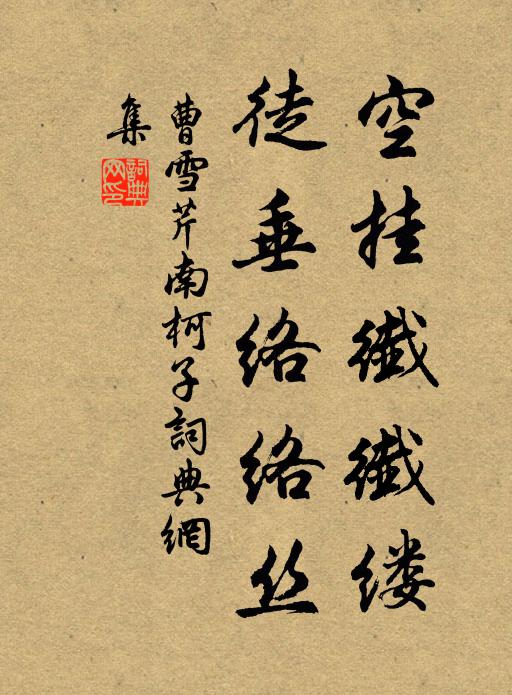 空挂纖纖缕
徒垂络络丝
曹雪芹南柯子詞典網
集
詞典網印